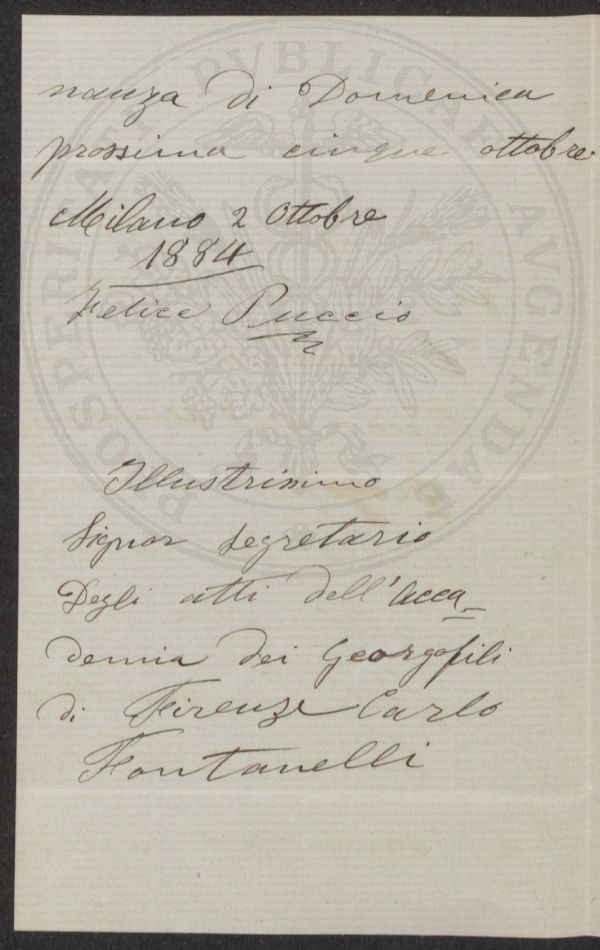 nanza di Domenica
prossima cinque ottobre
Milano 2 Ottobre
1884
Felice Puccio
Illustrissimo
Signor Segretario
Degli atti dell'Acca_
demia dei Georgofili
di Firenze Carlo
Fontanelli
PROSPERITATI PVBLICAE AVGENDAE